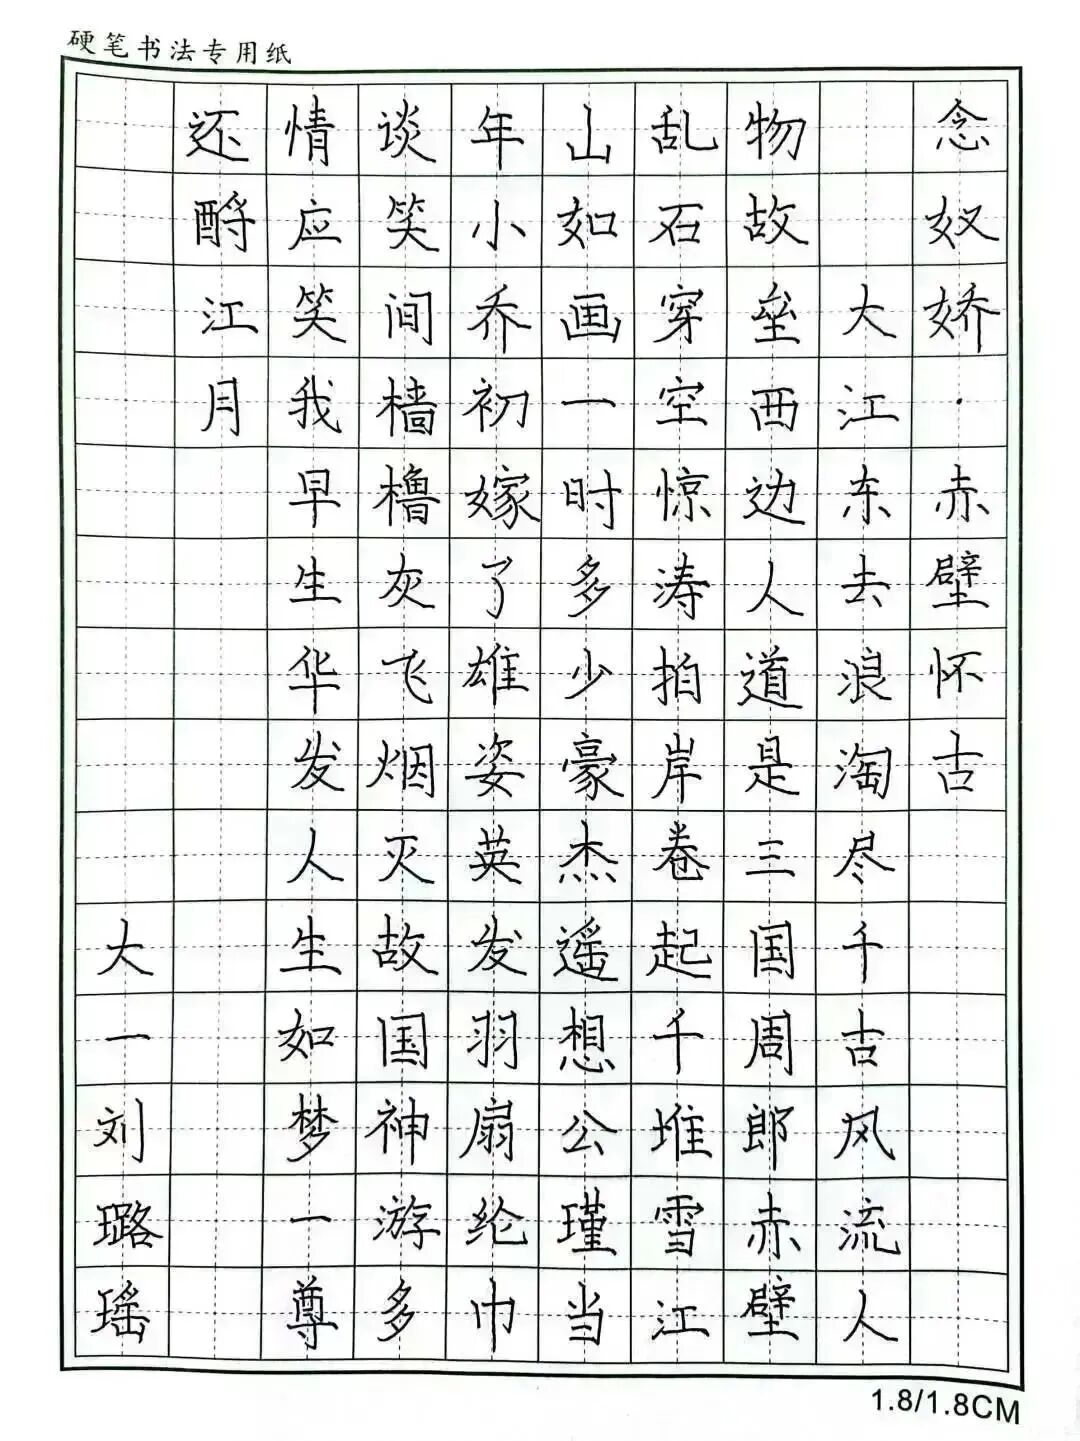 硬笔书法专用纸
念奴娇·赤壁怀古
大江东去浪淘尽千古风流人
物故垒西边人道是三国周郎赤壁
乱石穿空惊涛拍岸卷起千堆雪江
山如画一时多少豪杰遥想公瑾当
年小乔初嫁了雄姿英发羽扇纶巾
谈笑间樯橹灰飞烟灭故国神游多
情应笑我早生华发人生如梦一尊
还酹江月
大一刘璐瑶
1.8/1.8CM